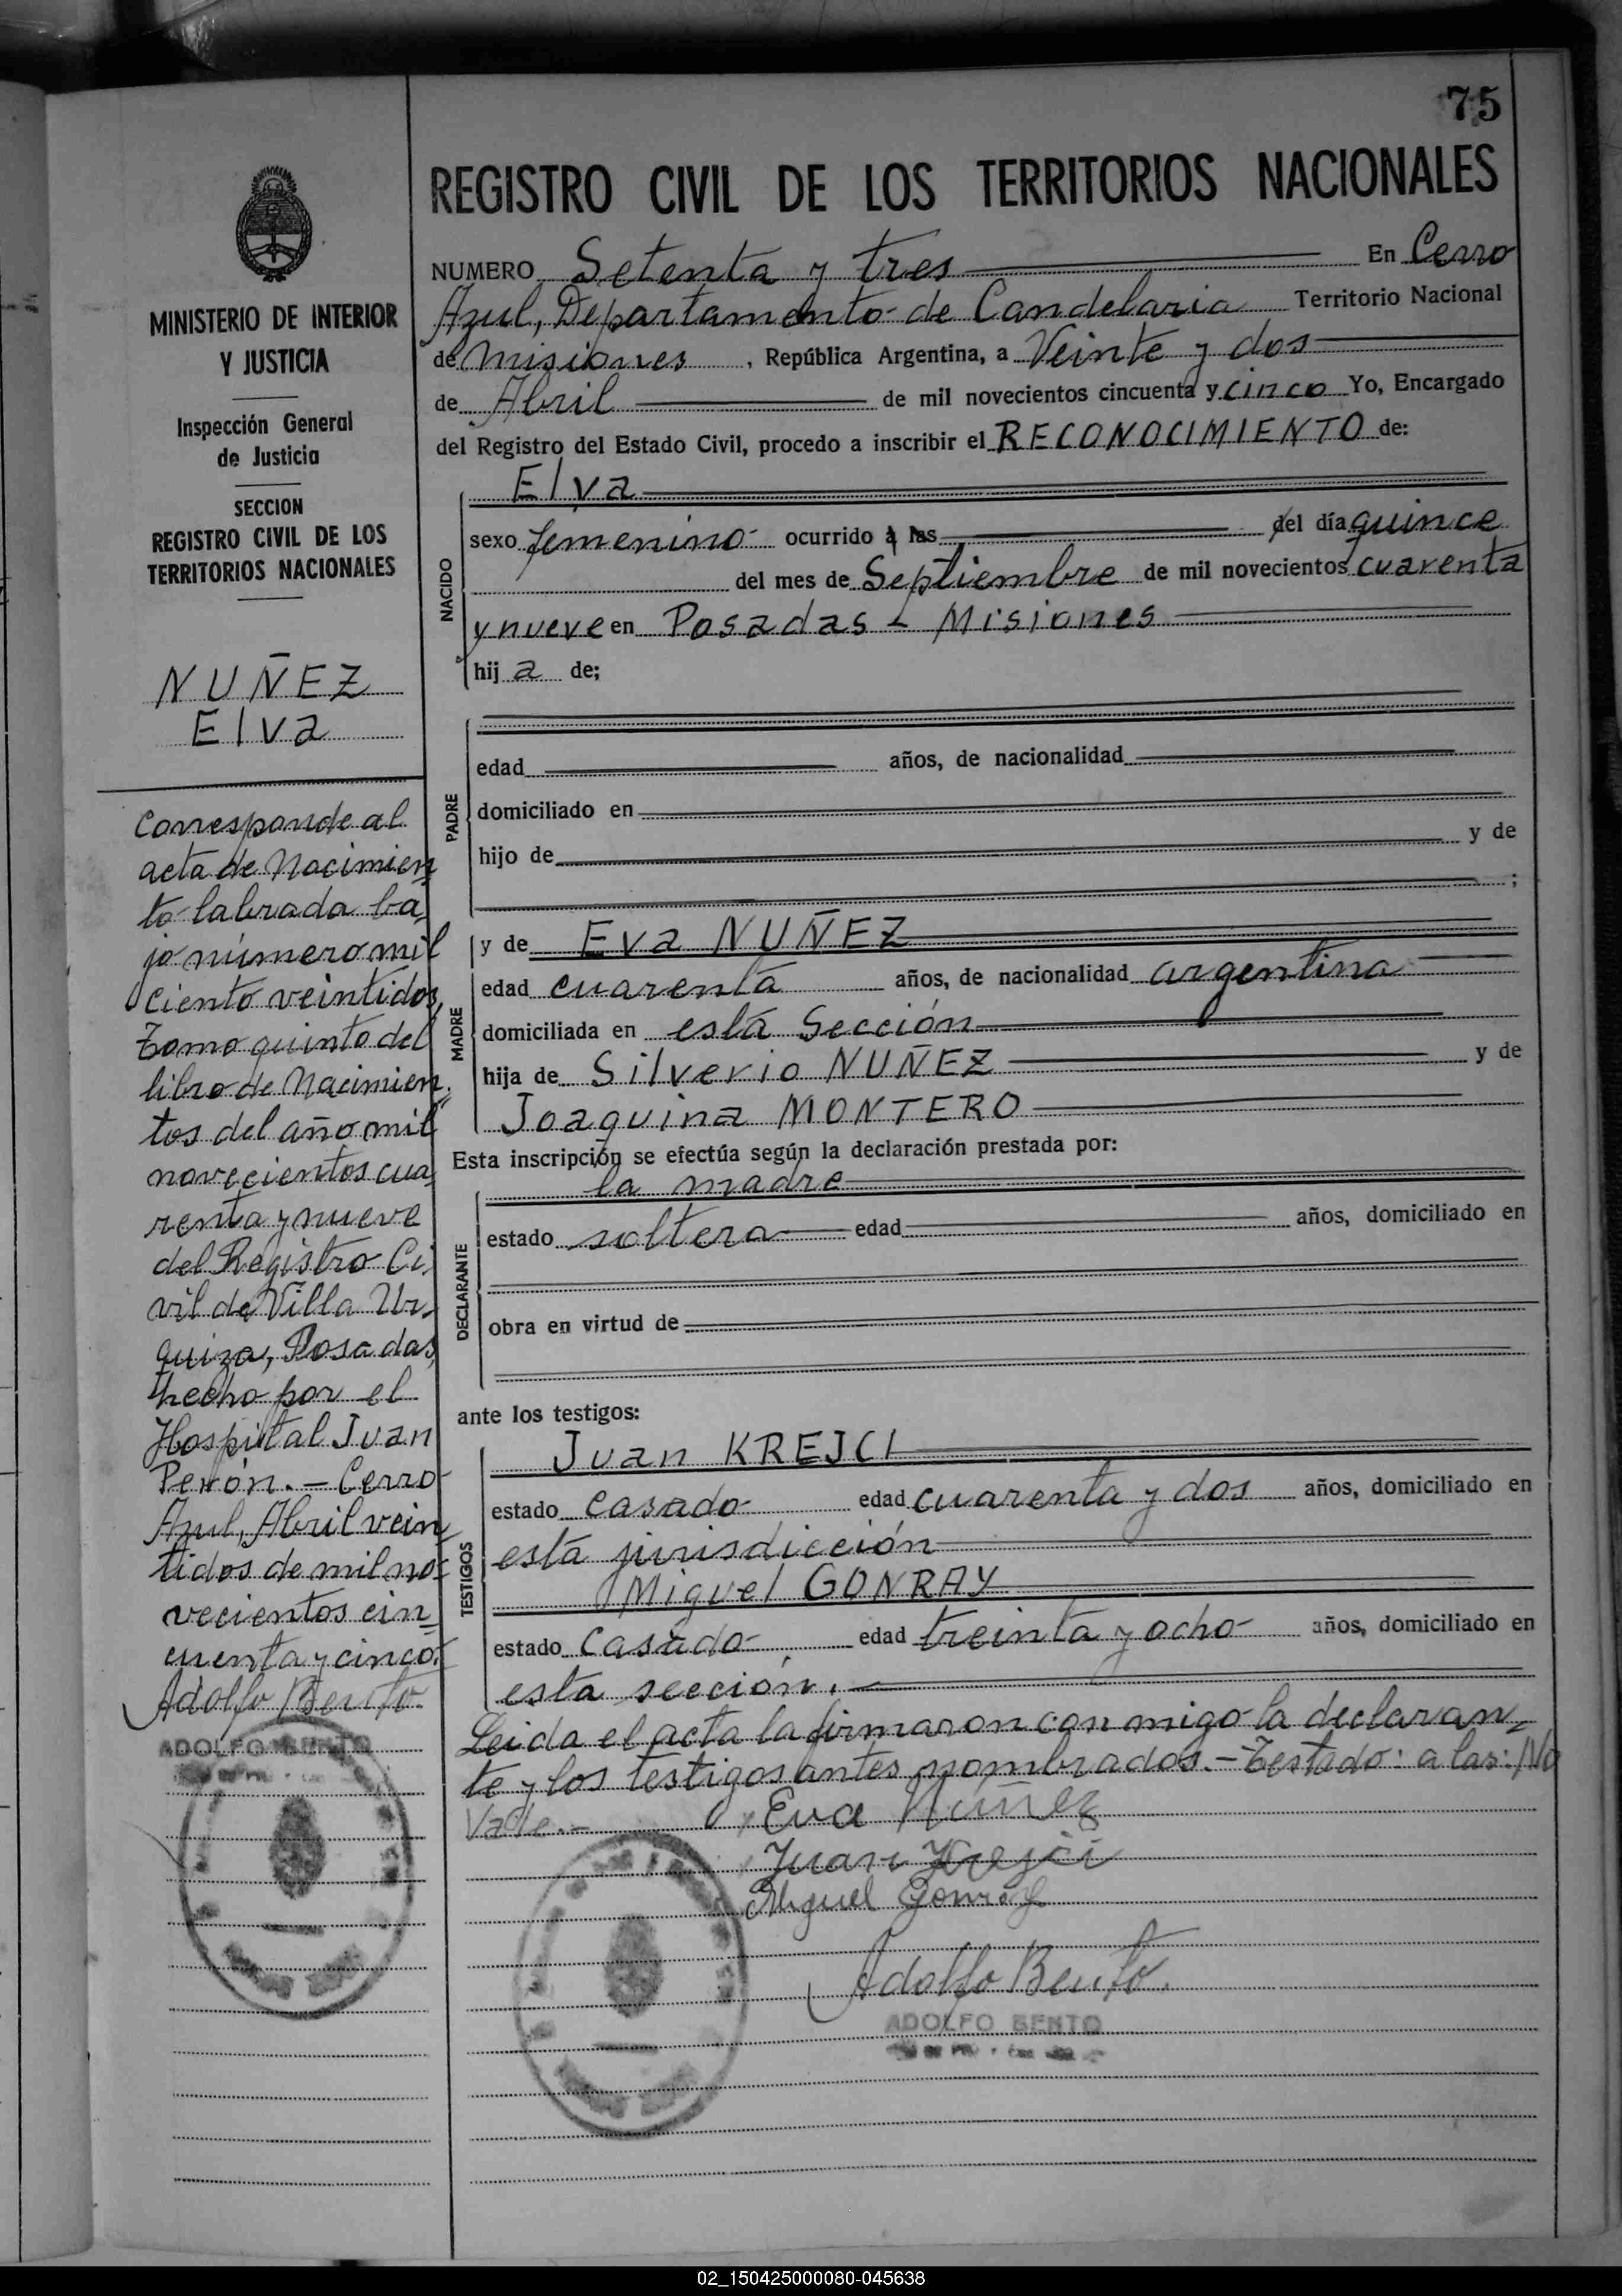 75
REGISTRO CIVIL DE LOS TERRITORIOS NACIONALES
MINISTERIO DE INTERIOR
Y JUSTICIA
Inspección General
de Justicia
SECCION
REGISTRO CIVIL DE LOS
TERRITORIOS NACIONALES
NUÑEZ
Elva
Corresponde al
acta de Nacimien
to labrada ba
jo número mil
ciento veintidos,
Tomo quinto del
libro de Nacimien
tos del año mil
novecientos cua
renta y nueve
del Registro Ci
vil de Villa Ur
quiza, Posadas,
hecho por el
Hospital Juan
Perón.- Cerro
Azul, Abril vein
tidos de mil no
vecientos cin
cuenta y cinco.
Adolfo Bento
ADOLFO BENTO
NUMERO Setenta y tres En Cerro
Azul, Departamento de Candelaria Territorio Nacional
de Misiones, República Argentina, a Veinte y dos
de Abril de mil novecientos cincuenta y cinco Yo, Encargado
del Registro del Estado Civil, procedo a inscribir el RECONOCIMIENTO de:
NACIDO
Elva
sexo femenino ocurrido a las del día quince
del mes de Septiembre de mil novecientos cuarenta
y nueve en Posadas - Misiones
hij a de;
PADRE
edad años, de nacionalidad
domiciliado en
hijo de y de
;
MADRE
y de Eva NUÑEZ
edad cuarenta años, de nacionalidad argentina
domiciliada en esta Sección
hija de Silverio NUÑEZ y de
Joaquina MONTERO
Esta inscripción se efectúa según la declaración prestada por:
DECLARANTE
la madre
estado soltera edad años, domiciliado en
obra en virtud de
ante los testigos:
TESTIGOS
Juan KREJCI
estado casado edad cuarenta y dos años, domiciliado en
esta jurisdicción
Miguel GONRAY
estado casado edad treinta y ocho años, domiciliado en
esta sección.-
Leida el acta la firmaron conmigo la declaran
te y los testigos antes nombrados.- Testado: a las: No
Vale.-
Eva Núñez
Juan Krejci
Miguel Gonray
Adolfo Bento.
ADOLFO BENTO
02_150425000080-045638